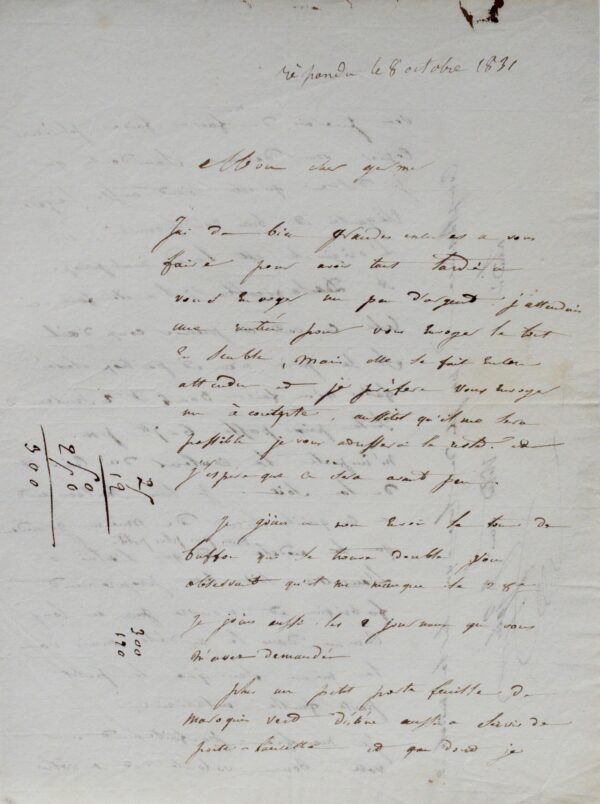 répondu le 8 octobre 1831
Mon cher
J'ai de bien grandes excuses a vous
faire pour avoir tant tardé a
vous envoyer un peu d'argent j'attendais
une rentrée pour vous envoyer le tout
ensemble, mais elle se fait encore
attendre et je préfère vous envoyer
un à compte. aussitôt qu'il me sera
possible je vous adresserai le reste et
j'espère que ce sera avant peu.
Je joins a mon envoi le tome de
buffon qui se trouve double, vous
observant qu'il me manque le 28e
Je joins aussi les 2 journaux que vous
m'avez demandés
plus un petit porte feuille de
maroquin verd a servir de
porte et que dont je
25
12
50
250
300
300
170